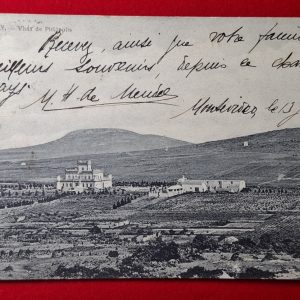 Y. - Vista de Piriápolis
Recevez, ainsi que votre famille
meilleurs souvenirs, depuis ce cha
pays!
M. H. de
Montevideo le 13